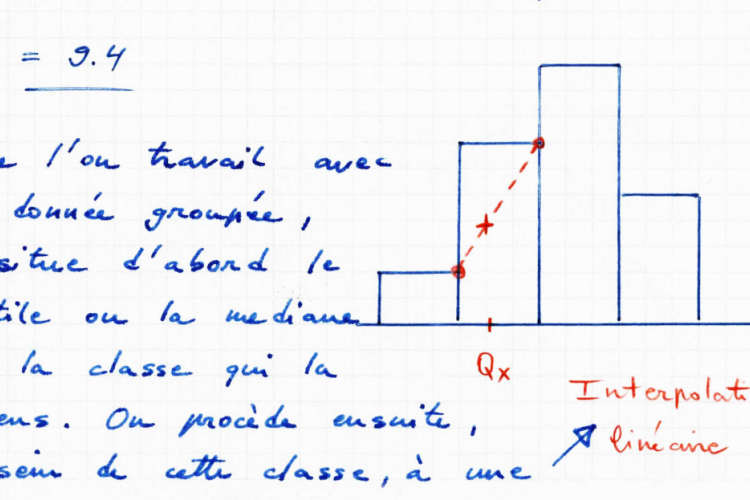 = 9.4
l'on travail avec
donnée groupée,
situe d'abord le
tile ou la mediane
la classe qui la
Qx
Interpolati
ens. On procède ensuite,
linéaire
sein de cette classe, à une